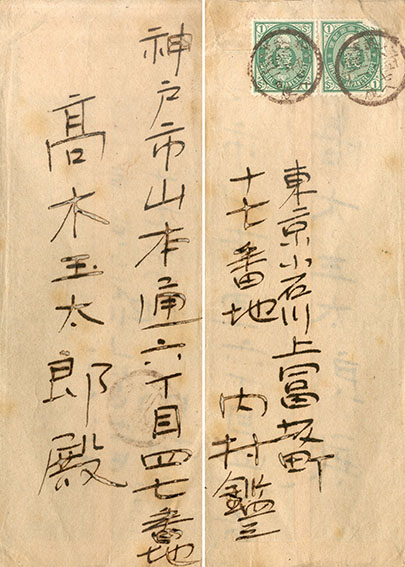 神戸市山本通六丁目四七番地
髙木玉太郎殿
東京小石川上冨坂町
十七番地
内村鑑三